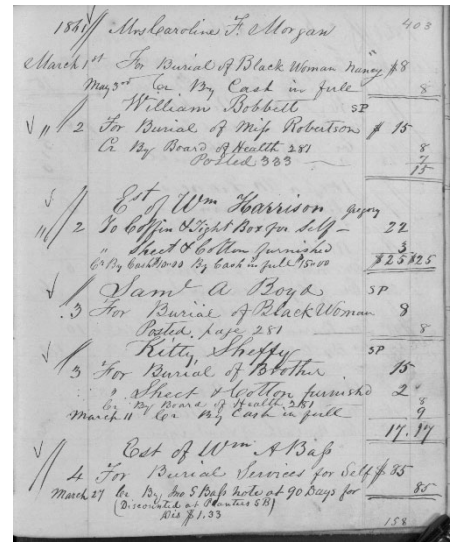 403
1861 Mrs Caroline F. Morgan
March 1st For Burial of Black Woman "Nancy" $8
May 3rd Cr By Cash in full 8
William Bobbett SP
" 2 For Burial of Miss Robertson $ 15
Cr By Board of Health 281 8
Posted 333 7
15
Est of Wm Harrison, Gregory
" 2 To Coffin & Tight Box for self - 22
" Sheet & Cotton furnished 3
Cr By Cash $10.00 By Cash in full $15.00 $25 $25
Saml A Boyd SP
" 3 For Burial of Black Woman 8
Posted, page 281 8
Kitty Sheffy SP
3 For Burial of Brother 15
" Sheet & Cotton furnished 2
Cr By Board of Health 281 8
March 11 Cr By Cash in full 9
17. 17
Est of Wm A Bass
" 4 For Burial Services for Self $ 85
March 27 Cr By Jno S Bass note at 90 Days for 85
(Discounted at Planters B)
Dis $1.33
158